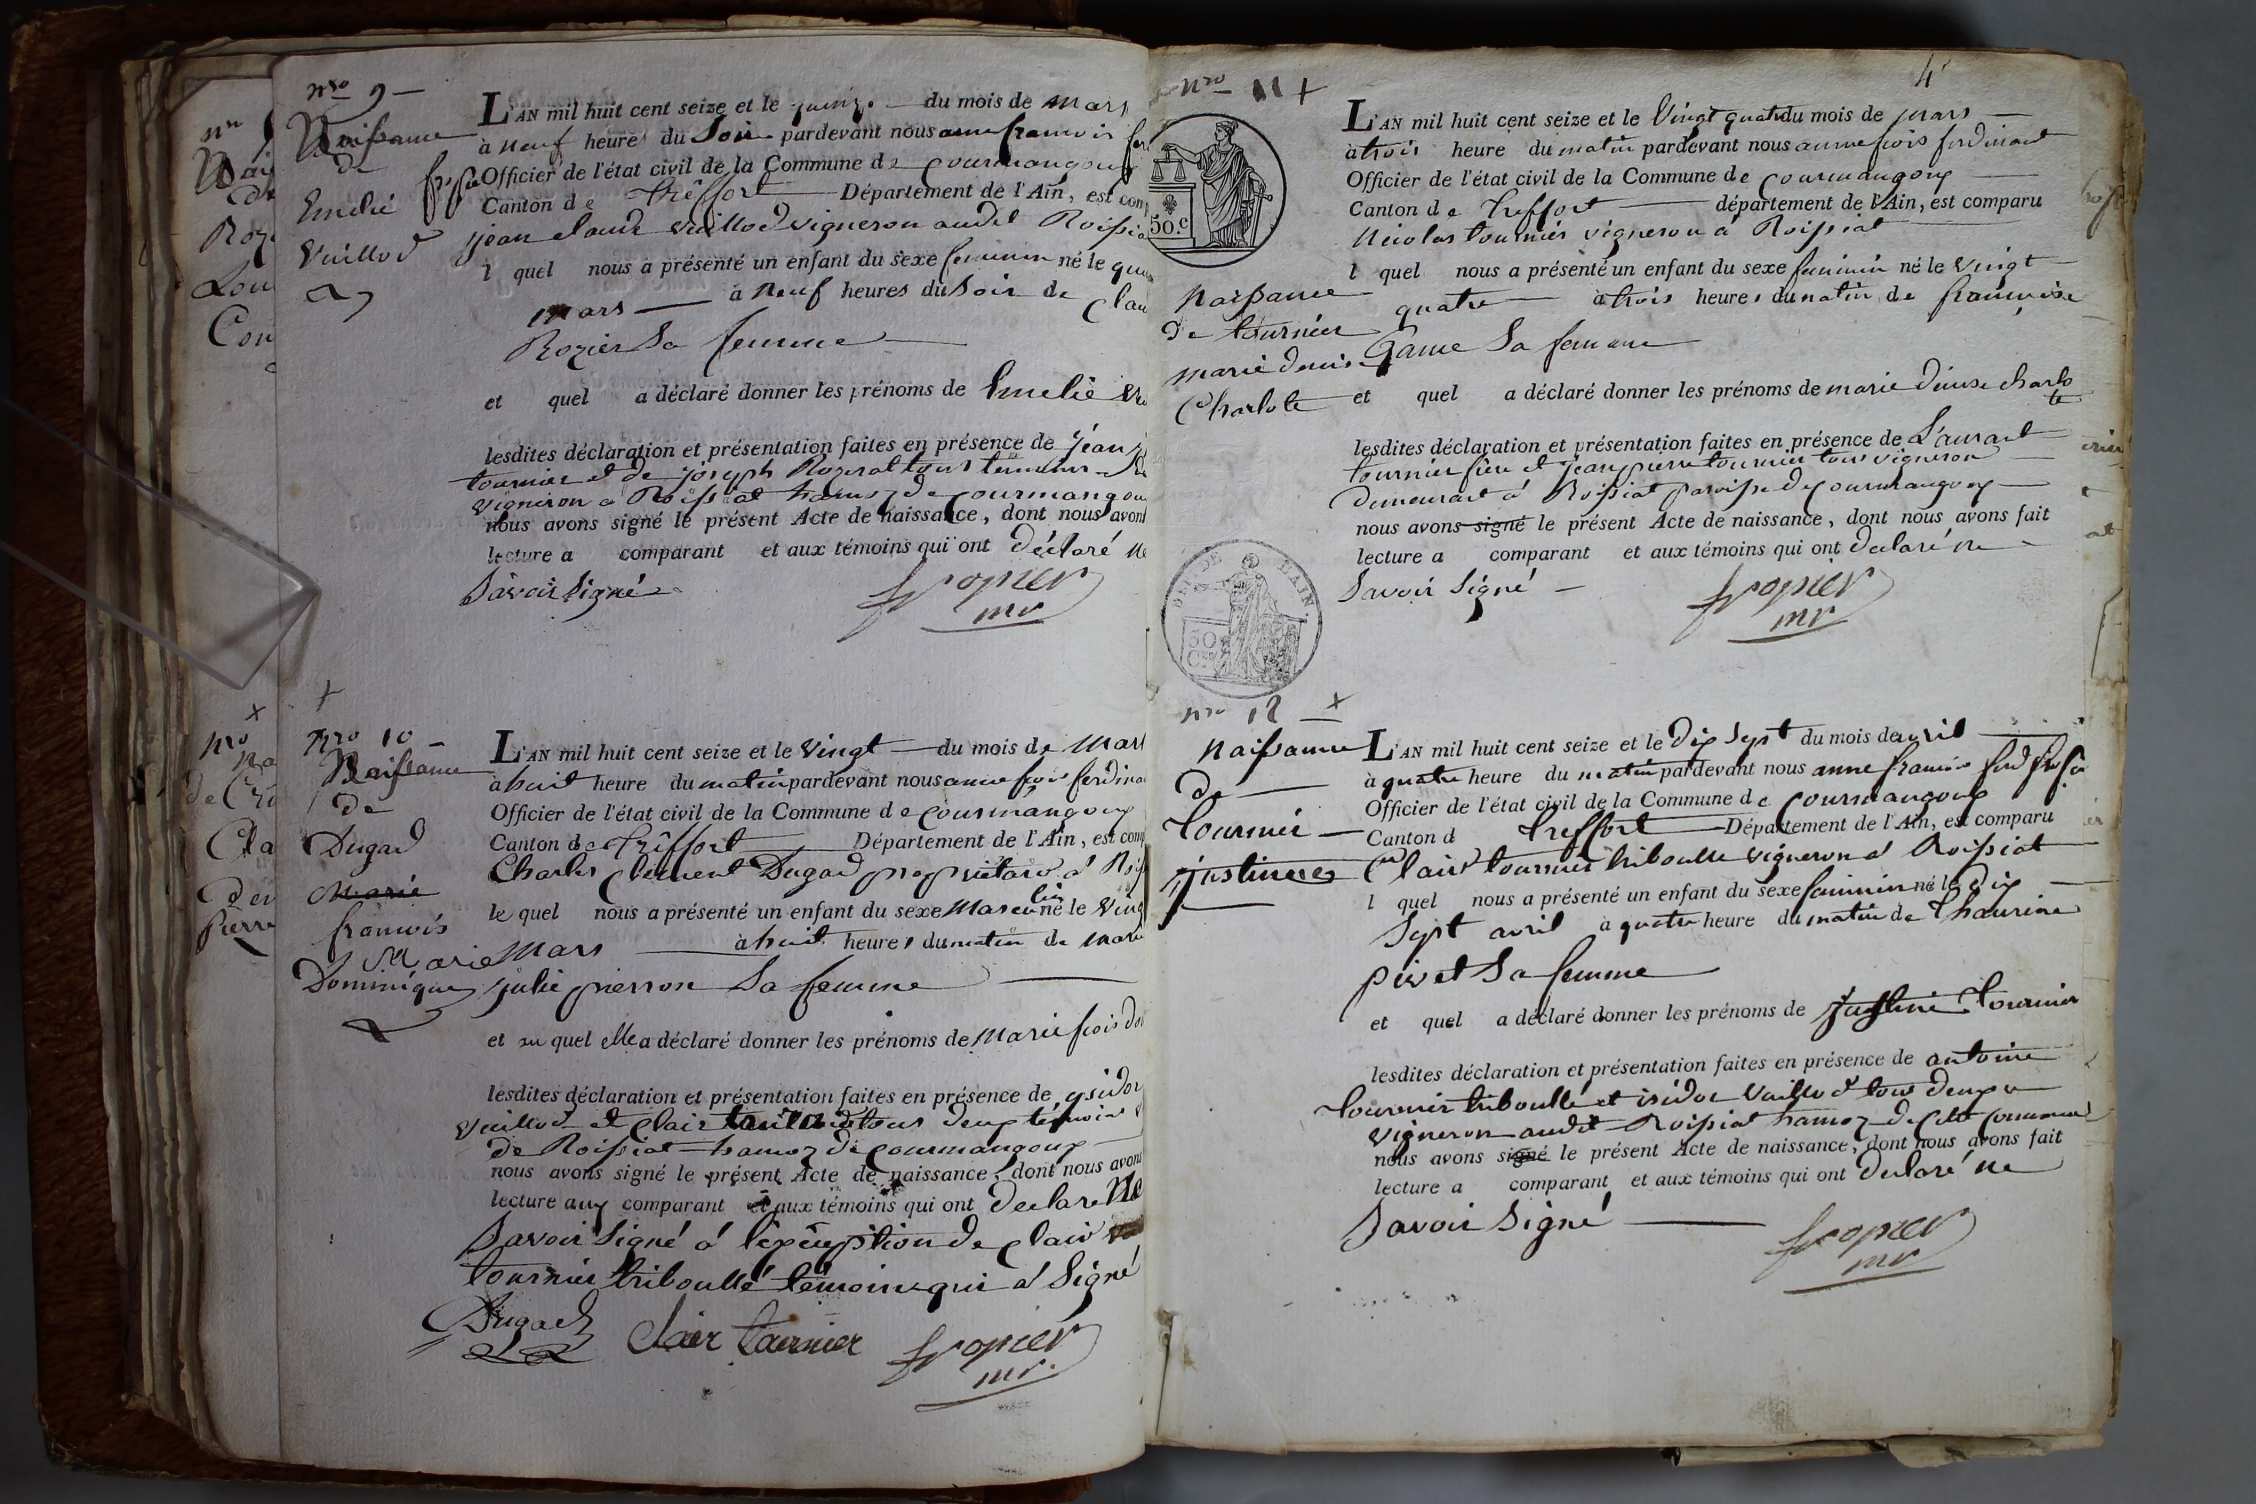 nro 9
Naissance
de
Emelié
Vuillod
L'AN mil huit cent seize et le quinze du mois de Mars
à neuf heure du Soir pardevant nous anne francois
Officier de l'état civil de la Commune de Courmangoux
Canton de Trêffort Département de l'Ain, est comp
jean claude vuillod vigneron audit Roissia
l quel nous a présenté un enfant du sexe feminin né le
mars à Neuf heures du Soir de Clau
Rozier Sa femme
et quel a déclaré donner les prénoms de Emelié
lesdites déclaration et présentation faites en présence de jean
tournier et de joseph Rozerat tous temoins
vigneron a Roissiat hamoz de Courmangou
nous avons signé le présent Acte de naissance, dont nous avons
lecture a comparant et aux témoins qui ont déclaré ne
Savoir Signé
mr
nro 10
Naissance
de
Dugad
Marie
francois
Marie
Dominique
L'AN mil huit cent seize et le Vingt du mois de Mars
à huit heure du matin pardevant nous anne fcois ferdina
Officier de l'état civil de la Commune de Courmangoux
Canton de Trêffort Département de l'Ain, est comp
Charles Clement Dugad propriétaire à
le quel nous a présenté un enfant du sexe Masculin né le Ving
Mars à huit heures du matin de Marie
julie pierron Sa femme
et au quel elle a déclaré donner les prénoms de Marie fcois do
lesdites déclaration et présentation faites en présence de ysidor
Vuillod et Clair tous deux témoins
de Roissiat hamoz de Courmangoux
nous avons signé le présent Acte de naissance, dont nous avons
lecture aux comparant et aux témoins qui ont declaré Ne
Savoir Signé à l'exception de Clair
tournier triboullé témoin qui a Signé
Dugad
Clair Tournier
mr.
4
nro 11 +
50.c
Naissance
de tournier
marie denise
Charlote
L'AN mil huit cent seize et le Vingt quatre du mois de Mars
à trois heure du matin pardevant nous anne fcois ferdinand
Officier de l'état civil de la Commune de Courmangoux
Canton de Treffort département de l'Ain, est comparu
Nicolas tournier vigneron à Roissiat
l quel nous a présenté un enfant du sexe feminin né le Vingt
quatre à trois heures du matin de françoise
Game Sa femme
et quel a déclaré donner les prénoms de marie denise charlo
te
lesdites déclaration et présentation faites en présence de Laurant
tournier fiere et jean pierre tournier tous vigneron
demeurant à Roissiat paroisse de Courmangoux
nous avons signé le présent Acte de naissance, dont nous avons fait
lecture a comparant et aux témoins qui ont declaré ne
Savoir Signé
mr
DEP. DE L'AIN.
50
C.mes
nro 12 +
Naissance
de
Tournier
justine
L'AN mil huit cent seize et le Dix Sept du mois de avril
à quatre heure du matin pardevant nous anne francois ferd
Officier de l'état civil de la Commune de Courmangoux
Canton d Treffort Département de l'Ain, est comparu
Clair tournier triboulle vigneron à Roissiat
l quel nous a présenté un enfant du sexe feminin né le dix
Sept avril à quatre heure du matin de Thaurine
pivet Sa femme
et quel a déclaré donner les prénoms de justine Tournier
lesdites déclaration et présentation faites en présence de antoine
tournier triboullé et isidor Vuillod tous deux
vigneron audit Roissiat hamoz de cette commune
nous avons signé le présent Acte de naissance, dont nous avons fait
lecture a comparant et aux témoins qui ont declaré ne
Savoir Signé
mr